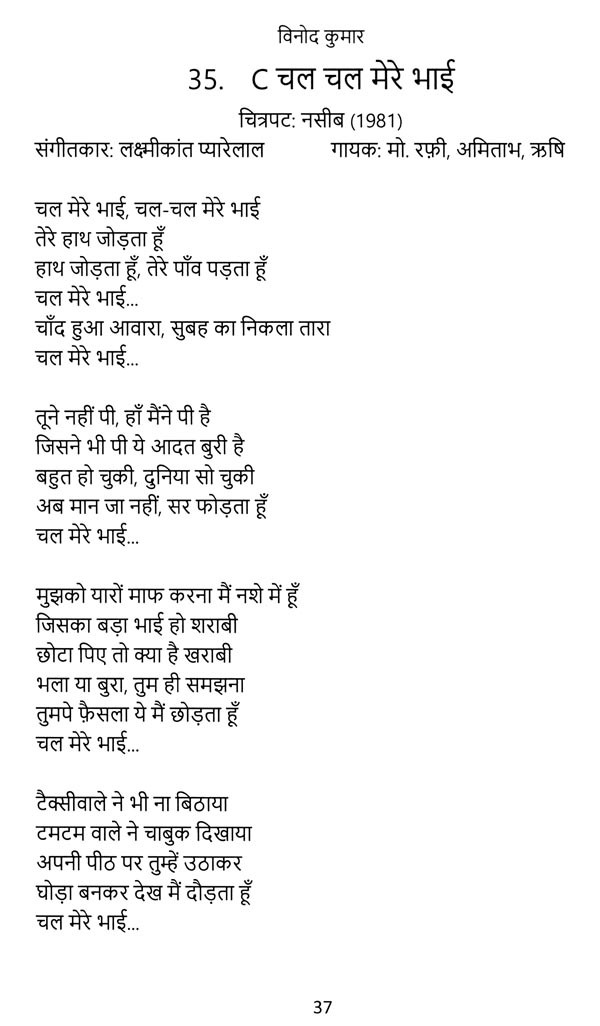 विनोद कुमार
35. C चल चल मेरे भाई
चित्रपट: नसीब (1981)
संगीतकार: लक्ष्मीकांत प्यारेलाल गायक: मो. रफ़ी, अमिताभ, ऋषि
चल मेरे भाई, चल-चल मेरे भाई
तेरे हाथ जोड़ता हूँ
हाथ जोड़ता हूँ, तेरे पाँव पड़ता हूँ
चल मेरे भाई...
चाँद हुआ आवारा, सुबह का निकला तारा
चल मेरे भाई...
तूने नहीं पी, हाँ मैंने पी है
जिसने भी पी ये आदत बुरी है
बहुत हो चुकी, दुनिया सो चुकी
अब मान जा नहीं, सर फोड़ता हूँ
चल मेरे भाई...
मुझको यारों माफ करना मैं नशे में हूँ
जिसका बड़ा भाई हो शराबी
छोटा पिए तो क्या है खराबी
भला या बुरा, तुम ही समझना
तुमपे फ़ैसला ये मैं छोड़ता हूँ
चल मेरे भाई...
टैक्सीवाले ने भी ना बिठाया
टमटम वाले ने चाबुक दिखाया
अपनी पीठ पर तुम्हें उठाकर
घोड़ा बनकर देख मैं दौड़ता हूँ
चल मेरे भाई...
37